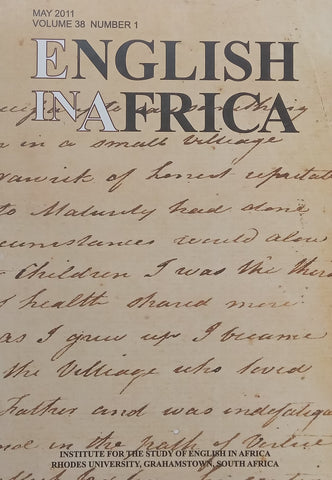 MAY 2011
VOLUME 38 NUMBER 1
ENGLISH
IN AFRICA
something
in a small Villeage
of honest
to Maturity had done
would alow
Children I was the
health shared more
as I grew up I became
the Villeage who loved
Father and was
in the path of Vertue
INSTITUTE FOR THE STUDY OF ENGLISH IN AFRICA
RHODES UNIVERSITY, GRAHAMSTOWN, SOUTH AFRICA